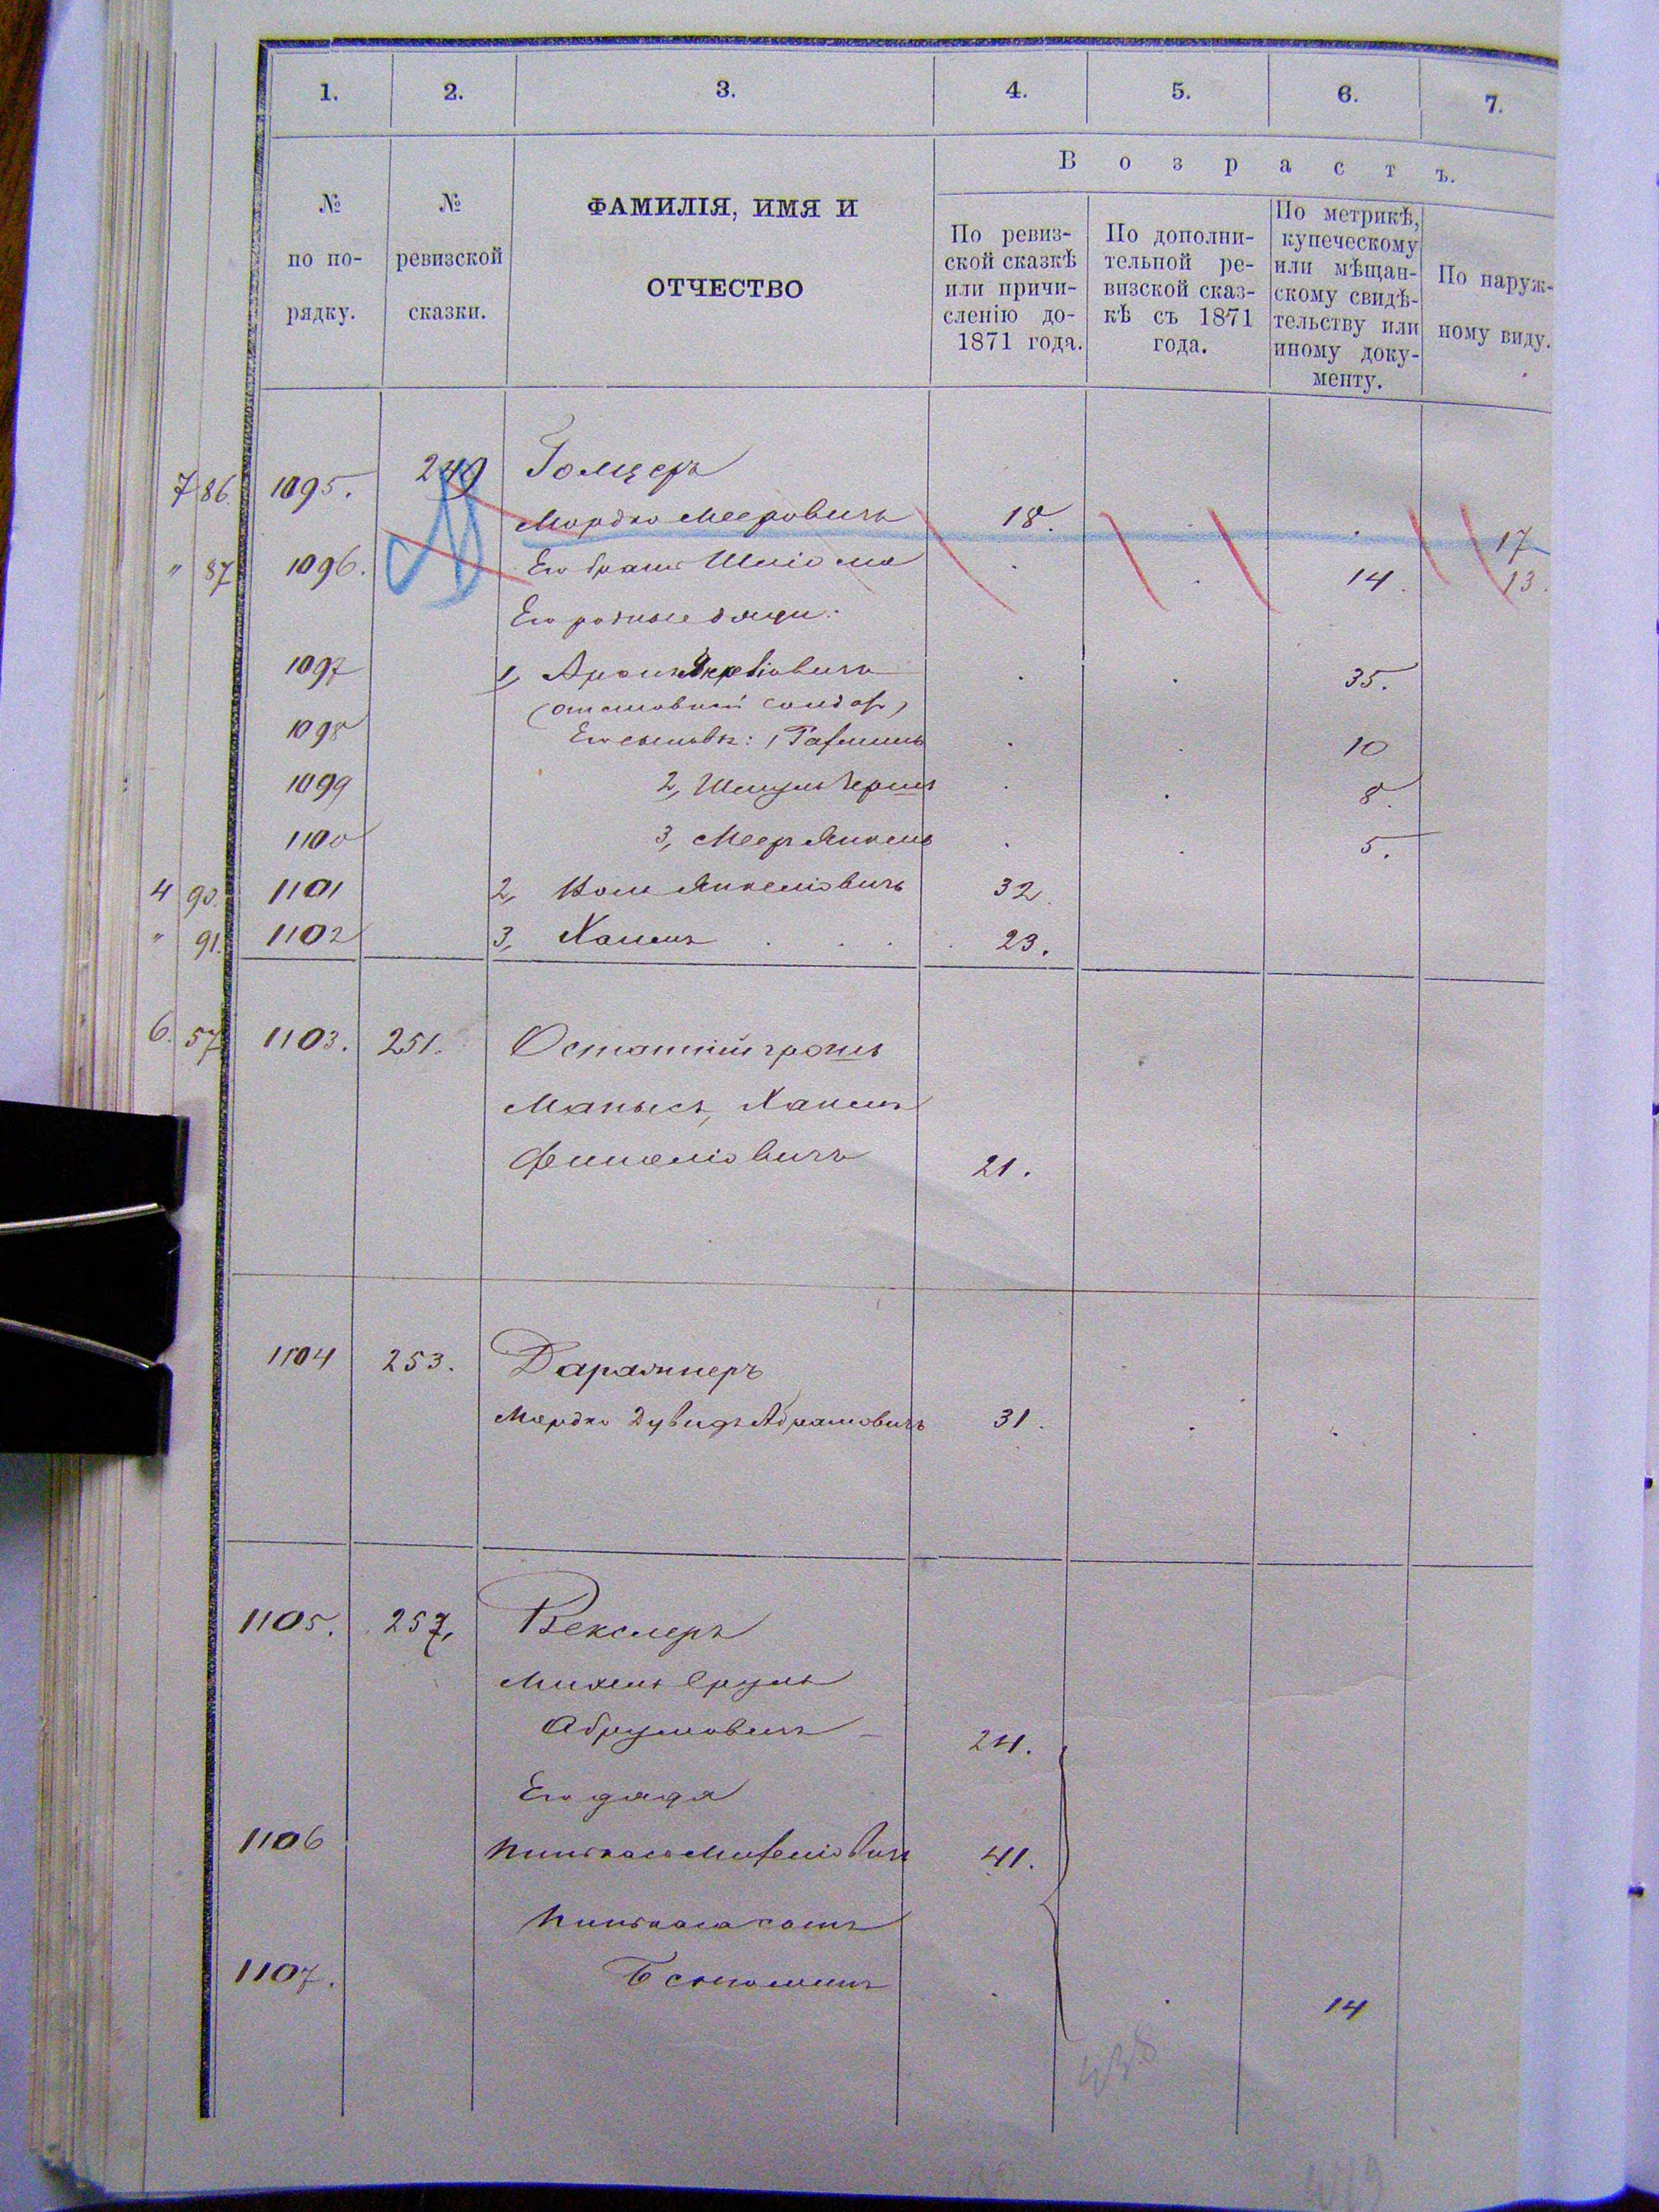 1. 2. 3. 4. 5. 6. 7.
№ по порядку.
№ ревизской сказки.
ФАМИЛІЯ, ИМЯ И
ОТЧЕСТВО
Возрастъ.
По ревиз-
ской сказкѣ
или причи-
сленію до-
1871 года.
По дополни-
тельной ре-
визской сказ-
кѣ съ 1871
года.
По метрикѣ,
купеческому
или мѣщан-
скому свидѣ-
тельству или
иному доку-
менту.
По наруж-
ному виду.
7 86. 1095. 249 Голцеръ
Мордко Мееровичъ 18. 17
" 87 1096. Его братъ Шліома 14. 13.
Его родные дяди:
1097 1, Аронъ Янкеліовичъ 35.
(отставной солдатъ)
1098 Его сыновья: 1, 10
1099 2, Шмуль Гершъ 8.
1100 3, Мееръ Янкель 5.
4 90. 1101 2, Янкеліовичъ 32.
" 91. 1102 3, Хаимъ 23.
6. 57 1103. 251. Остатнійгрошъ
Манысъ, Хаимъ
21.
1104 253. Даражнеръ
Мордко Дувидъ Абрамовичъ 31.
1105. 257, Векслеръ
Михель Сруль
Абрумовичъ 24.
Его дядя
1106 Пинкасъ Михеліовичъ 41.
Пинкаса сынъ
1107. 14
438
419